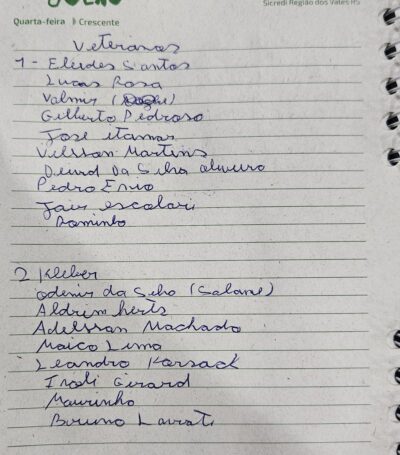 JULHO
Sicredi Região dos Vales RS
Quarta-feira Crescente
Veteranos
1 - Eleides Santos
Lucas Rosa
Valmir
Gilberto Pedroso
Jose itamar
Vilsson Martins
Da Silva oliveira
Pedro Enio
Jair escolari
Dominho
2 Kleber
odenir da Silva (Salame)
Aldrim herts
Adelsson Machado
Maico Lima
Leandro Karsack
Iradi Girard
Maurinho
Bruno Lavrati